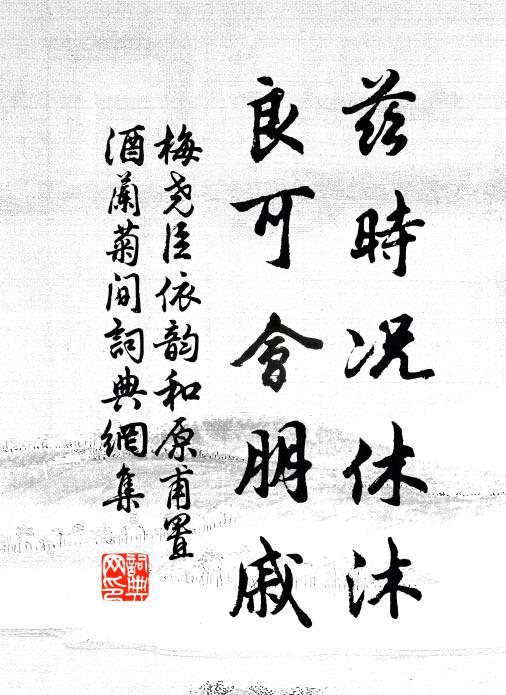 兹時況休沐
良可會朋戚
梅堯臣依韵和原甫置
酒蘭菊间詞典網集
詞典网印